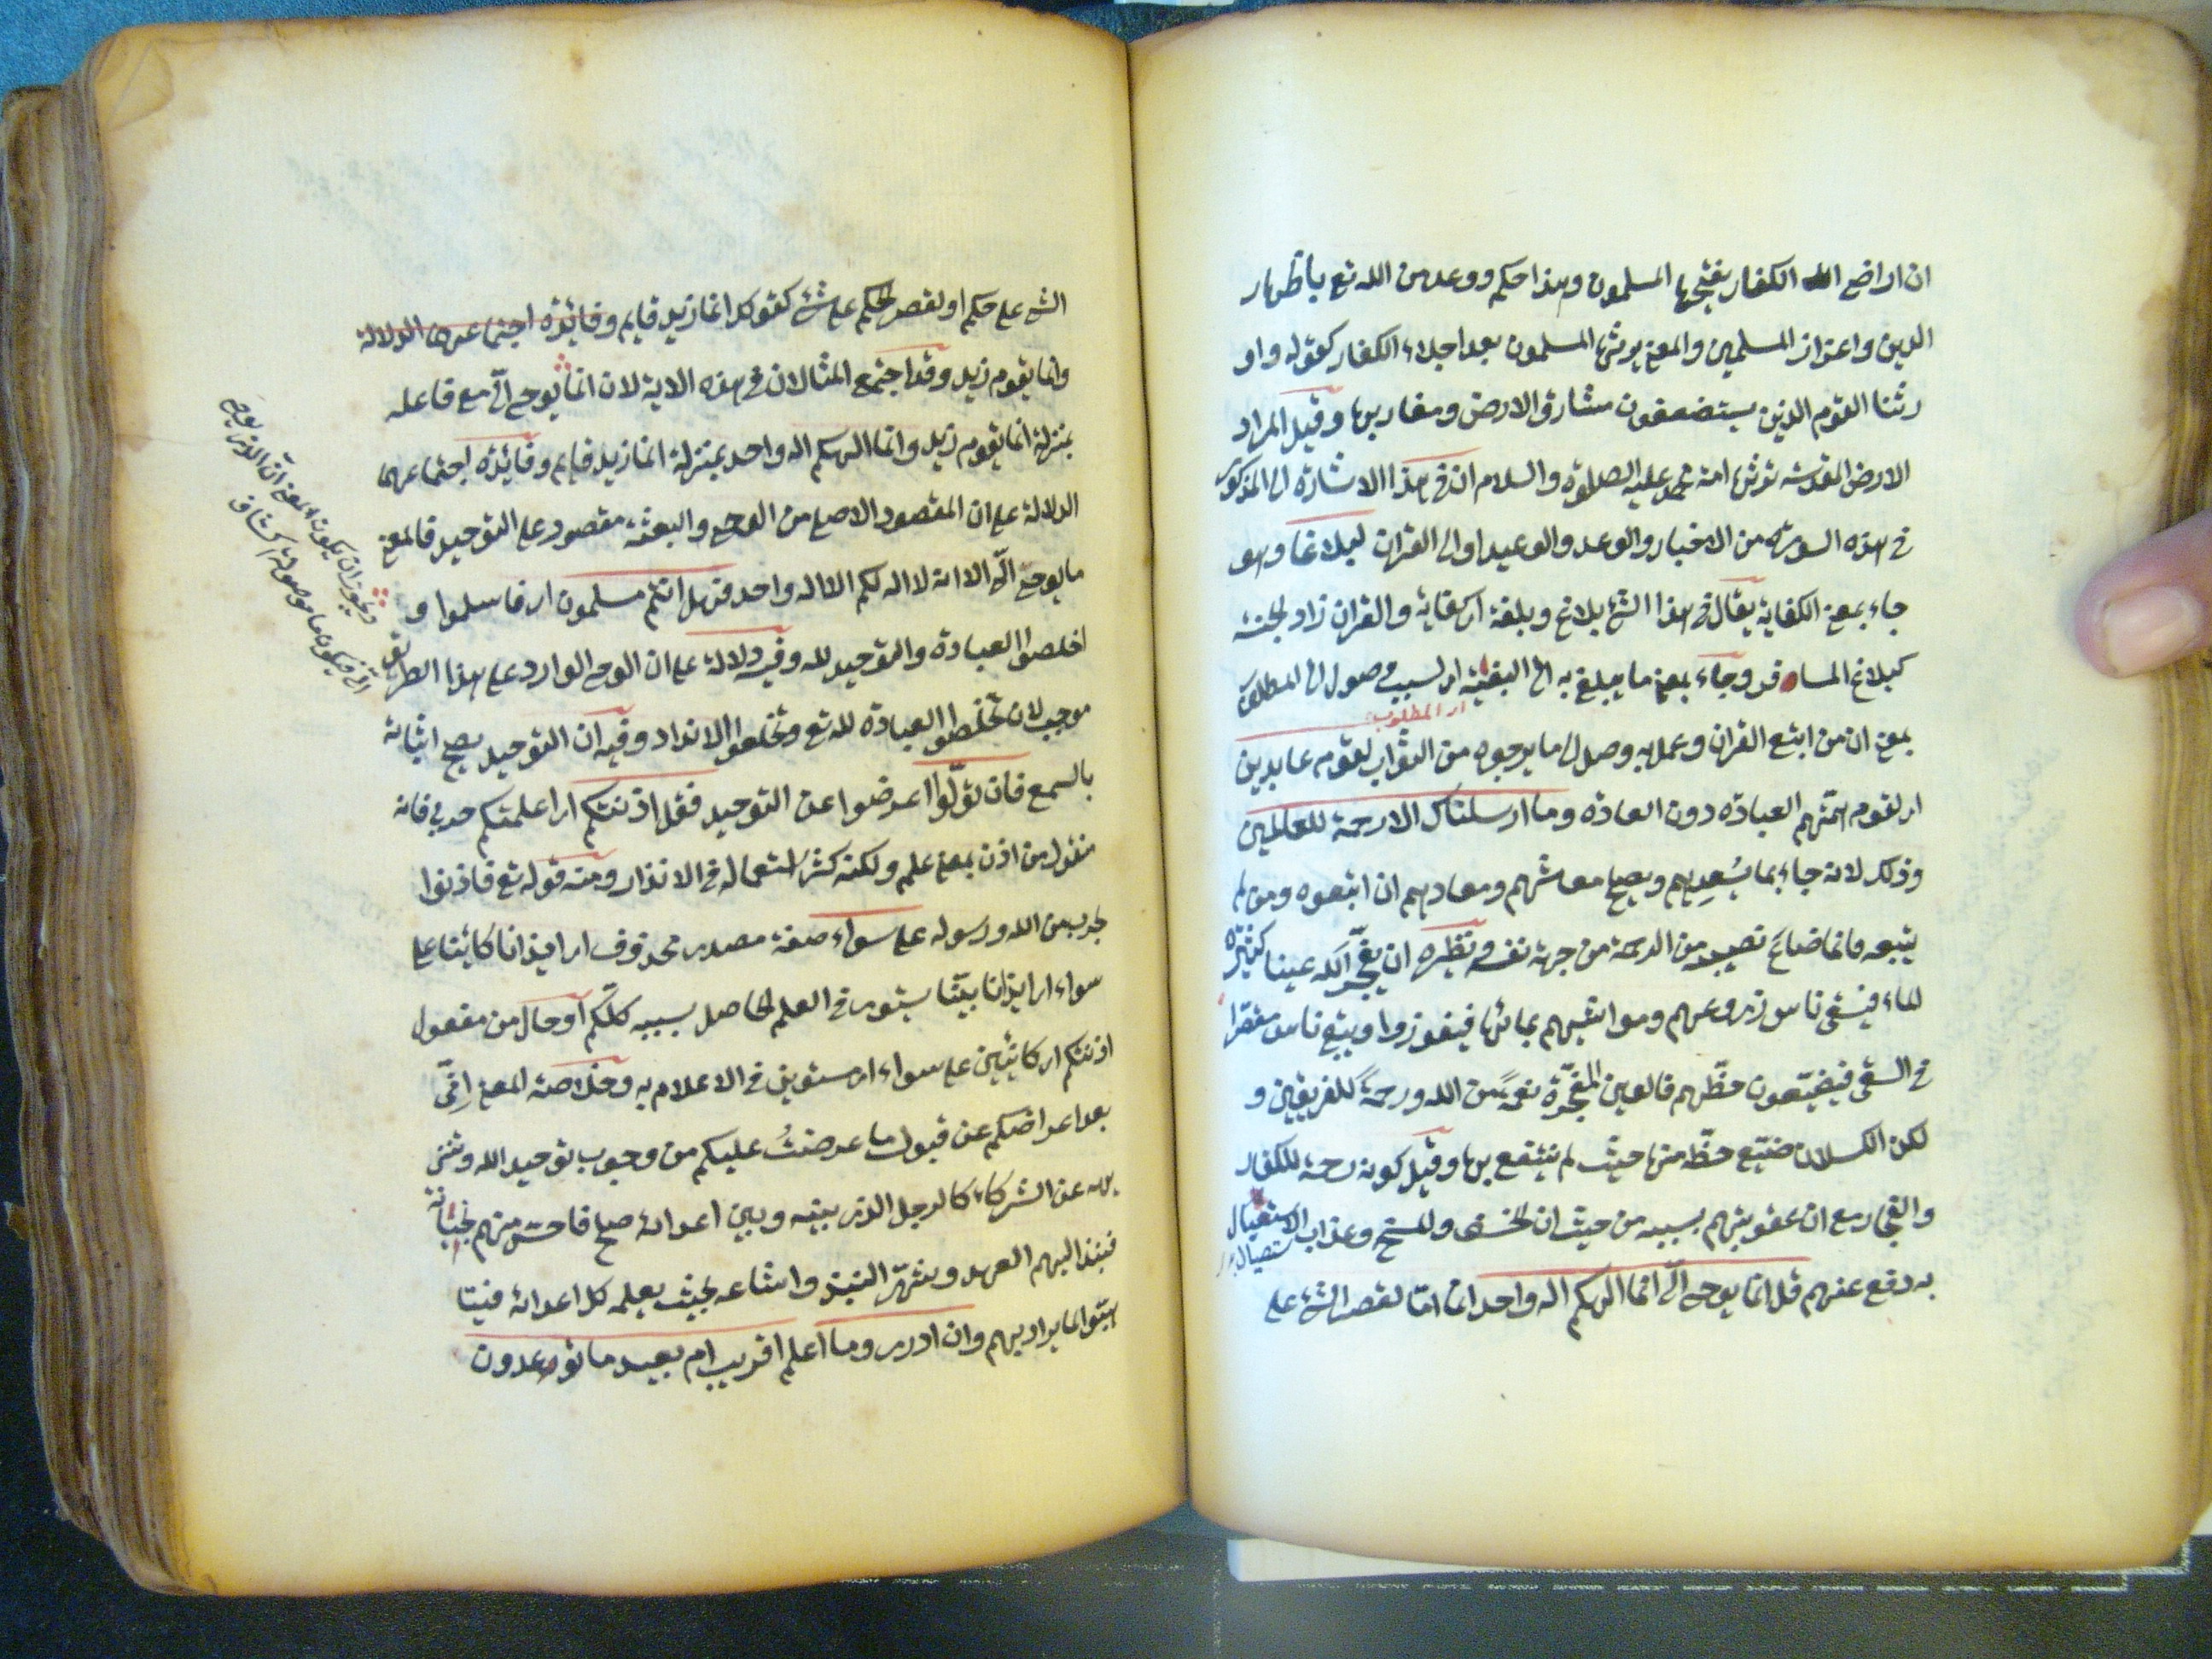 ان اراضى الكفار يفتحها المسلمون وهذا حكم ووعد من الله تع باظهار
الدين واعزاز المسلمين والمعنى يرثها المسلمون بعد اجلاء الكفار كقوله واو
رثنا القوم الذين يستضعفون مشارق الارض ومغاربها وقيل المراد
الارض المقدسة ترثها امة محمد عليه الصلوة والسلام ان فى هذا الاشارة الى المذكور
فى هذه السورة من الاخبار والوعد والوعيد او الى القران لبلاغا وهو
جاء بمعنى الكفاية يقال فى هذا الشئ بلاغ وبلغة اى كفاية والقران زاد لجنة
كبلاغ المسافر وجاء بمعنى ما يبلغ به الى البغية اى لسبب وصول الى المطلوب
اى المطلوب
بمعنى ان من اتبع القران وعمل به وصل الى ما يرجوه من الثواب لقوم عابدين
اى لقوم همتهم العبادة دون العادة وما ارسلناك الا رحمة للعالمين
وذلك لانه جاء بما يُسْعِدهم ويصلح معاشهم ومعادهم ان اتبعوه ومن لم
يتبعه فانما ضاع نصيبه من الرحمة من جهة نفسه ونظيره ان يفجّر الله عينا كثيرة
الماء فيسقى ناس زروعهم ومواشيهم بمائها فيفوزوا ويبقى ناس مقصرا
فى السقى فيضيّعون حظّهم فالعين المفجّرة نعمةً من الله ورحمةً للفريقين و
لكن الكسلان ضيّع حظّه منها حيث لم ينتفع بها وقيل كونه رحمة للكفار
والفجار مع ان عقوبتهم بسببه من حيث ان الخسف والمسخ وعذاب الاستيصال
به دفع عنهم قل انما يوحى الىّ انما الهكم اله واحد انما امّا لقصر الشئ على
الشئ على حكم او لقصر الحكم على شئ كقولك انما زيد قايم وفائدة اجتماعهما الدلالة
وانما يقوم زيد وقد اجتمع المثالان فى هذه الاية لان انما يوحى الىّ مع فاعله
بمنزلة انما يقوم زيد وانما الهكم اله واحد بمنزلة انما زيد قايم وفائدة اجتماعهما
الدلالة على ان المقصود الاصلى من الوحى والبعثة مقصور على التوحيد فالمعنى
ما يوحى الىّ الا انه لا اله لكم الا اله واحد فهل انتم مسلمون اى فاسلموا و
اخلصوا العبادة والتوحيد لله وفيه دلالة على ان الوحى الوارد على هذا الطريق
موجب لان تخلصوا العبادة لله تع وتخلعوا الانداد وفيه ان التوحيد يصح اثباته
بالسمع فان تولّوا اعرضوا عن التوحيد فقل اذنتكم اى اعلمتكم حربى فانه
منقول من اذن بمعنى علم ولكنه كثر استعماله فى الانذار ومنه قوله تع فاذنوا
بحرب من الله ورسوله على سواء صفة مصدر محذوف اى ايذانا كائنا على
سواء اى ايذانا بيّنا يستوى فى العلم الحاصل بسببه كلّكم او حال من مفعول
اذنتكم اى كائنين على سواء اى مستوين فى الاعلام به وخلاصة المعنى اِنّى
بعد اعراضكم عن قبول ما عرضتُ عليكم من وجوب توحيد الله وتنز
يهه عن الشركاء كالرجل الذى بينه وبين اعدائه صلح فاحسّ منهم بخيانة
فنبذ اليهم العهد وشهّر النبذ واشاعه بحيث يعلمه كل اعدائه
لما يراد بهم وان ادرى وما اعلم اقريب ام بعيد ما توعدون
ويجوز ان يكون المعنى ان الذى يوحى
الىّ فيكون ما موصولة كشاف